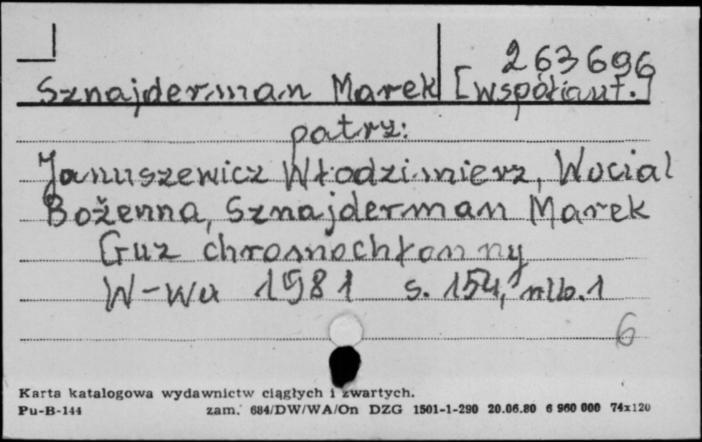 263696
Sznajderman Marek [współaut.]
patrz:
Januszewicz Włodzimierz, Wocial
Bożenna, Sznajderman Marek
Guz chromochłonny
W-wa 1981 s. 154, nlb. 1
6
Karta katalogowa wydawnictw ciągłych i zwartych.
Pu-B-144 zam. 684/DW/WA/On DZG 1501-1-290 20.06.80 6 960 000 74x120